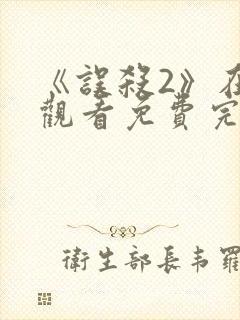 《誤殺2》在
觀看免費完
衛生部長韦羅